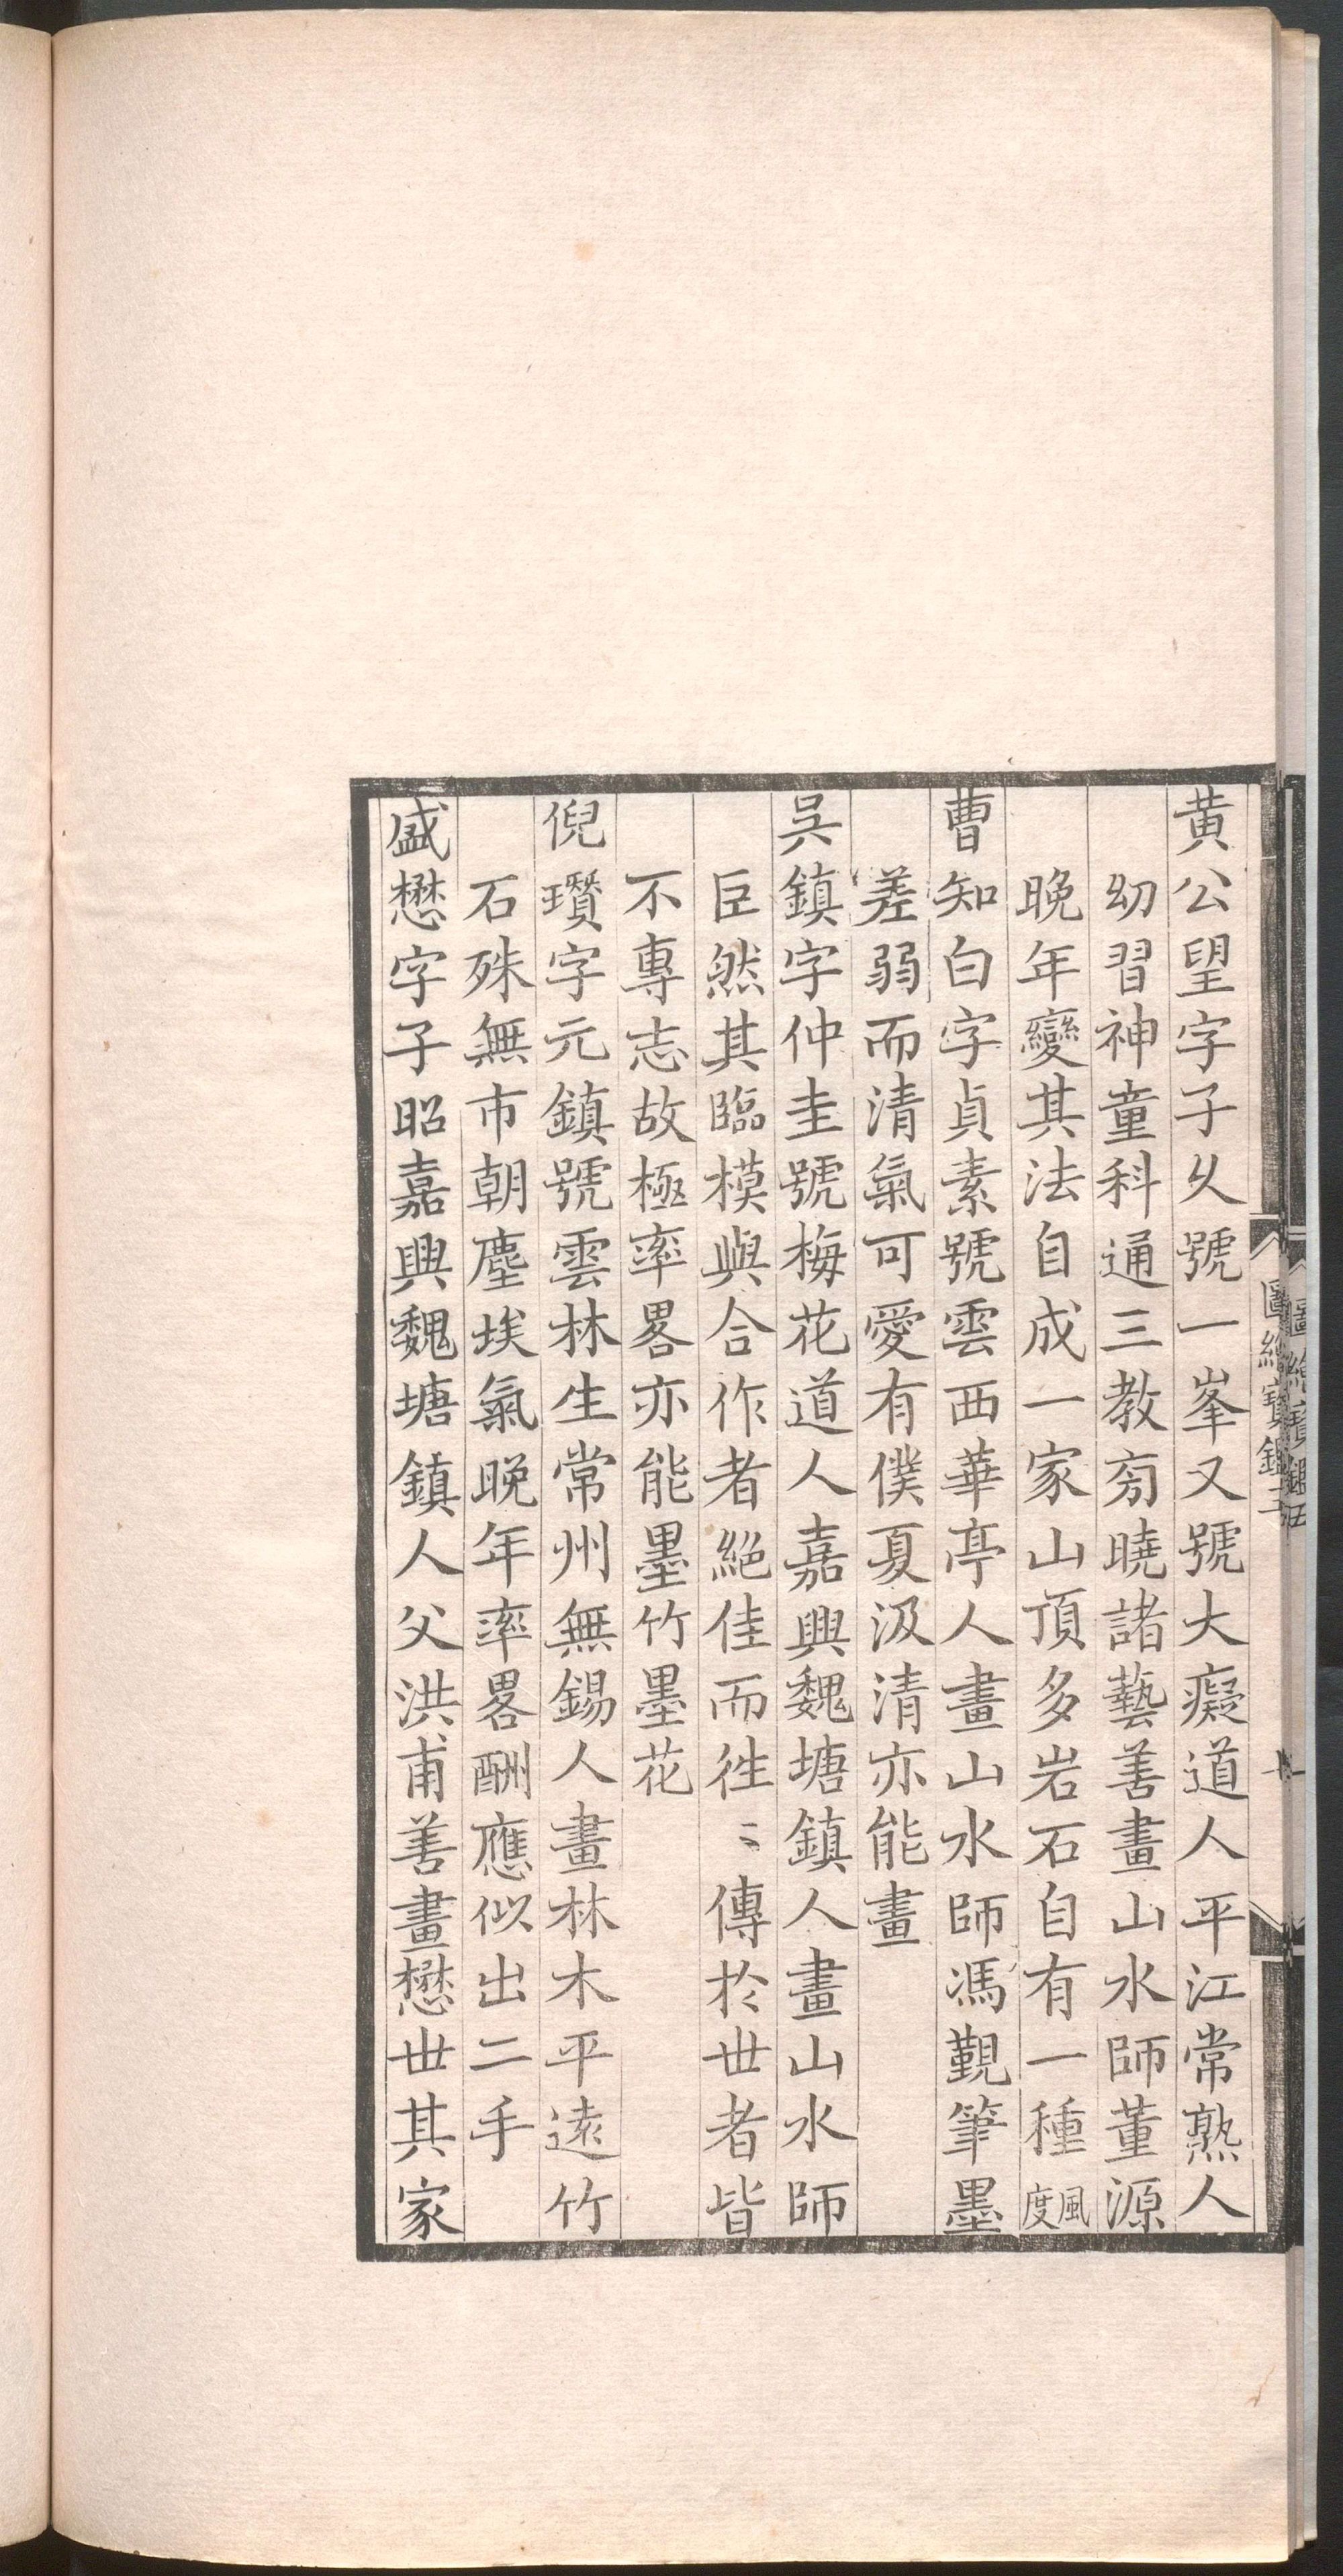 黄公望字子久號一峯又號大癡道人平江常熟人
幼習神童科通三教旁曉諸藝善畫山水師董源
晚年變其法自成一家山頂多岩石自有一種風度
曹知白字貞素號雲西華亭人畫山水師馮覲筆墨
差弱而清氣可愛有僕夏汲清亦能畫
吳鎮字仲圭號梅花道人嘉興魏塘鎮人畫山水師
巨然其臨模與合作者絕佳而徃〻傳於世者皆
不專志故極率畧亦能墨竹墨花
倪瓚字元鎮號雲林生常州無錫人畫林木平遠竹
石殊無市朝塵埃氣晚年率畧酬應似出二手
盛懋字子昭嘉興魏塘鎮人父洪甫善畫懋世其家
圖繪寶鑑五
十一